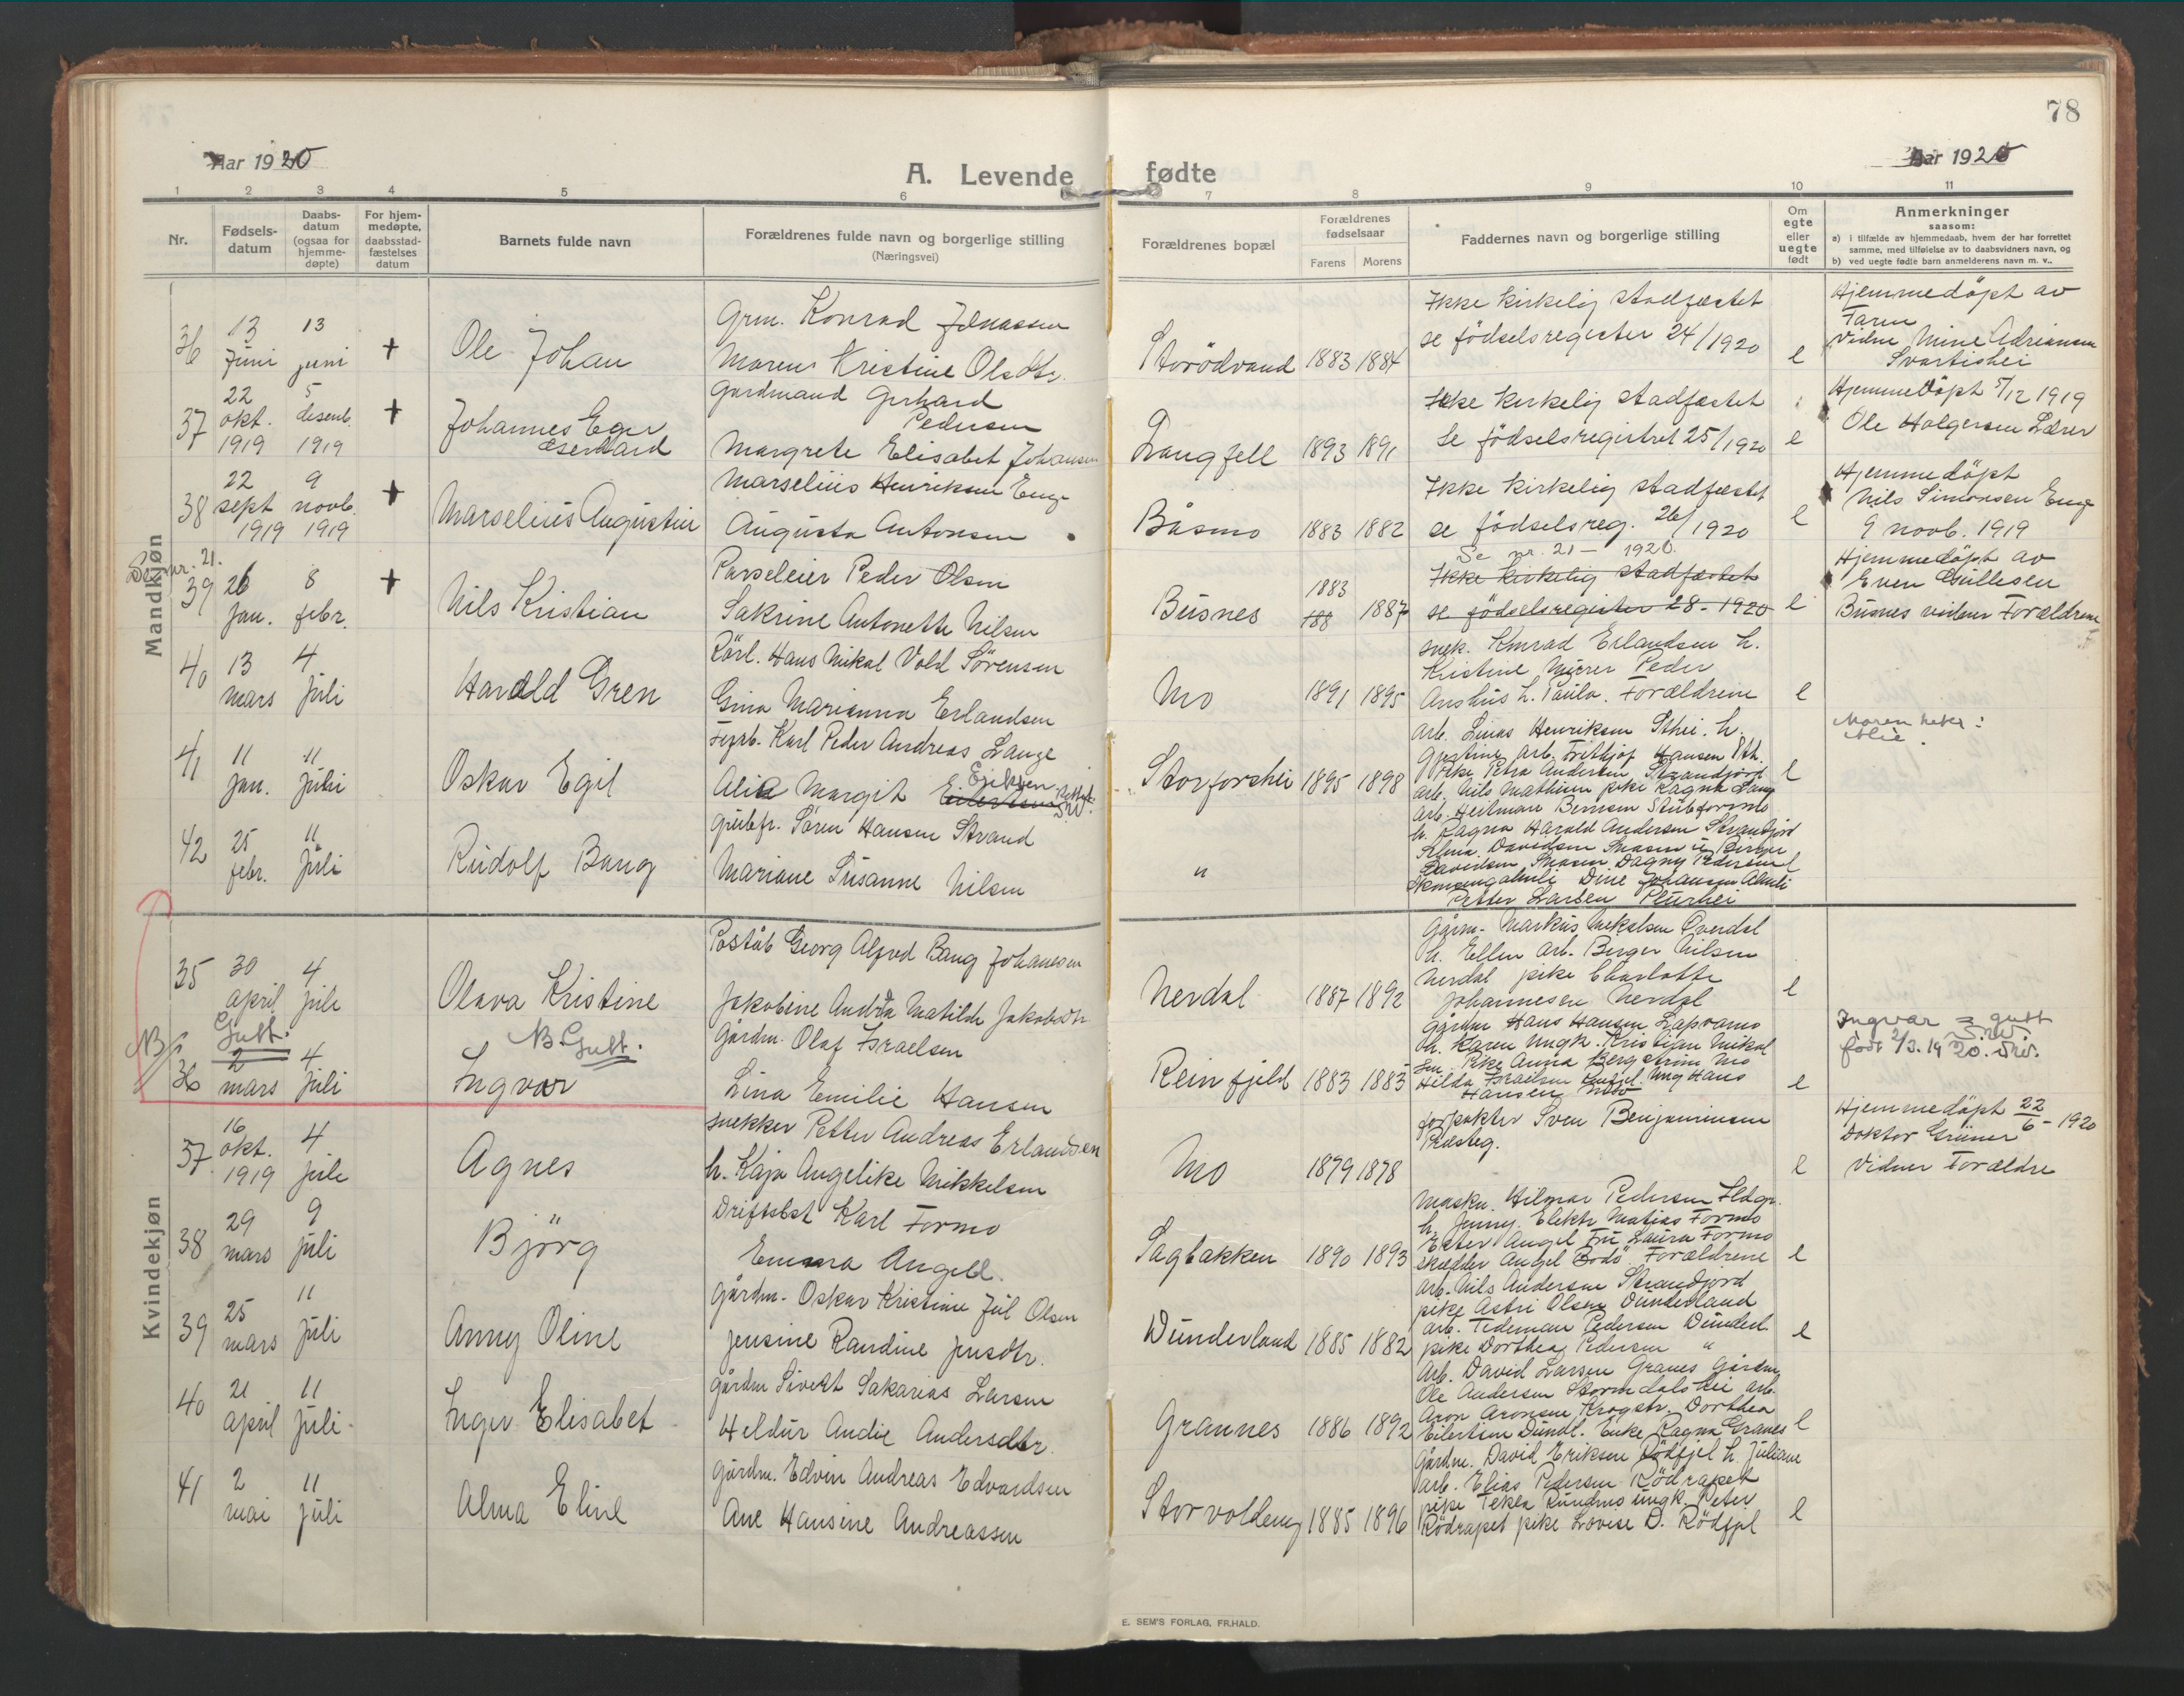 78
Aar 1920
A. Levende fødte
Aar 1920
1 2 3 4 5 6 7 8 9 10 11
Nr.
Fødsels-
datum
Daabs-
datum
(ogsaa for
hjemme-
døpte)
For hjem-
medøpte,
daabsstad-
fæstelses
datum
Barnets fulde navn
Forældrenes fulde navn og borgerlige stilling
(Næringsvei)
Forældrenes bopæl
Forældrenes
fødselsaar
Farens Morens
Faddernes navn og borgerlige stilling
Om
egte
eller
uegte
født
Anmerkninger
saasom:
a) i tilfælde av hjemmedaab, hvem der har forrettet
samme, med tilføielse av to daabsvidners navn, og
b) ved uegte fødte barn anmelderens navn m. v..
Mandkjøn
36
13
Juni
13
juni
+
Ole Johan
Grm. Konrad Jonassen
Maren Kristine Olsdtr.
Storödvand 1883 1884
Ikke kirkelig stadfæstet
se födselsregister 24/1920
e
Hjemmedöpt av
Faren
Vidne Mine Adriansen
Svartishei
37
22
okt.
1919
5
desemb.
1919
+
Johannes Eger
Gerhard
Gardmand Gerhard
Pedersen
Margrete Elisabet Johansen
Langfjell 1893 1891
Ikke kirkelig stadfæstet
Se födselsregistret 25/1920
e
Hjemmedöpt 5/12 1919
Ole Holgersen Lærer
38
22
sept
1919
9
novb.
1919
+
Marselius Augustin
Marselius Henriksen Eng
Augusta Antonsen
Båsmo 1883 1882
Ikke kirkelig stadfæstet
se födselsreg. 26/1920
e
Hjemmedöpt
Nils Simonsen Eng
9 novb. 1919
Se nr. 21.
39
26
jan.
8
febr.
+
Nils Kristian
Parseleier Peder Olsen
Sakrine Antonette Nilsen
Busnes
1883
188 1887
Se nr. 21 - 1920.
Ikke kirkelig stadfæstet
se födselsregister 28-1920
e
Hjemmedöpt av
Even Gullesen
Busnes vidner Forældrene
40
13
mars
4
Juli
Harald Gren
Rörl. Hans Nikal Vold Sörensen
Gina Marianna Erlandsen
Mo 1891 1895
snek. Konrad Erlandsen h.
Kristine Murer Peder
Anshus h. Paula. Forældrene
e
41
11
jan.
11
Juli
Oskar Egil
Karl Peder Andreas Lange
Alie Margit Eriksen
Storforshei 1895 1898
arb. Linus Henriksen Sthei. h.
arb. Fritkjof Hansen Sth.
Pike Petra Andersen Strandjord
arb. Nils Mathisen pike Ragna Lang
e
Moren heter:
Alie.
42
25
febr.
11
Juli
Rudolf Bang
Grubfr. Sören Hansen Strand
Mariane Susanne Nilsen
"
arb. Heitmann Bernsen Stubformo
h. Ragna Harald Andersen Strandjord
Davidsen Snasen Dagny Pedersen
Dine Johansen Almli
Petter Larsen
e
Kvindekjøn
35
30
april
4
juli
Olava Kristine
Postab Georg Alfred Bang Johansen
Jakobine Andrea Matilde Jakobsdtr
Nerdal 1887 1892
Gårm. Markus Mikalsen Överdal
h. Ellen arb. Berger Nilsen
Nerdal pike Charlotte
Johannesen Nerdal
e
NB
36
Gutt.
2
mars
4
juli
NB. Gutt.
Ingvar
Gårdm. Olaf Israelsen
Lina Emilie Hansen
Reinfjeld 1883 1883
Gårdm Hans Hansen Lapvamo
h. Karen Ungk. Kristian Mikal
sen. Pike Anna Bergström Mo
Hilda Israelsen Ung Hans
Hansen Mo
e
Ingvar = gutt
født 2/3. 1920.
37
16
okt.
1919
4
juli
Agnes
snekker Petter Andreas Erlandsen
h. Kaja Angelike Mikkelsen
Mo 1879 1878
forpakter Sven Benjaminsen
Præsteg.
e
Hjemmedöpt 22/6 - 1920
Doktor Grüner
Vidner Forældre
38
29
mars
9
juli
Björg
Driftsbst Karl Formo
Emma Angell.
Sagbakken 1890 1893
Maskn. Hilmar Pedersen
h. Jenny. Elektr Matias Formo
Ester Angel Fru Laura Formo
Angel Bodö Forældrene
e
39
25
mars
11
juli
Anny Oline
Gårdm. Oskar Kristine Jul Olsen
Jensine Randine Jensdtr.
Dunderland 1885 1882
arb. Nils Andersen Strandjord
pike Astri Olsen Dunderland
arb. Tideman Pedersen Dunderl.
pike Dorthea Pedersen "
e
40
21
april
11
juli
Inger Elisabet
Gårdm Sivert Sakarias Larsen
Heldur Andie Andersdtr.
Grannes 1886 1892
Arb. David Larsen Granes Gårdm
Ole Andersen Stormdalshei arb.
Aron Aronsen Krogstr. Dorthea
Eilertsen Dundl. Enke Ragna Granes
e
41
2
mai
11
juli
Alma Eline
Gårdm. Edvin Andreas Edvardsen
Ane Hansine Andreassen
Storvoldeng 1885 1896
Gårdm. David Eriksen Rödfjel h. Juliane
arb. Elias Pedersen Rödrapet
pike Tekla Rundmo ungk. Peter
Rödrapet pike Lovise D. Rödfjel
e
E. SEM'S FORLAG, FR.HALD.